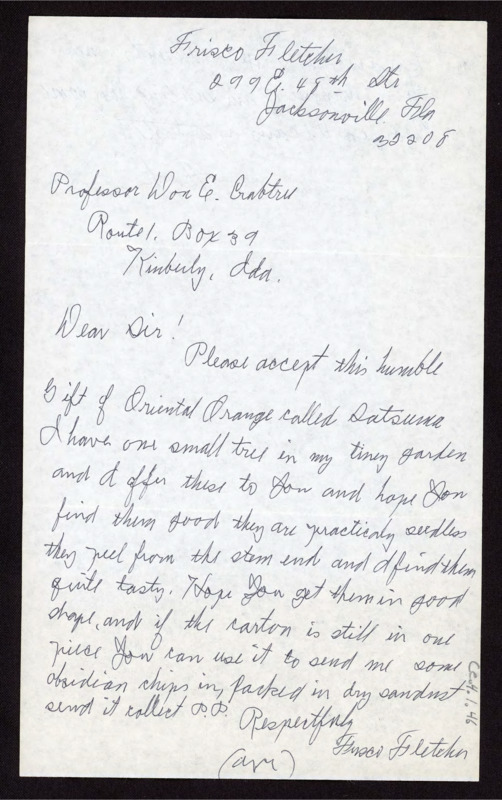 Frisco Fletcher
299 E. 49th Str
Jacksonville Fla
32208
Professor Don E. Crabtree
Route 1, Box 39
Kimberly, Ida.
Dear Sir!
Please accept this humble
Gift of Oriental Orange called Satsuma
I have one small tree in my tiney garden
and I offer these to You and hope You
find them good they are practicaly seedless
they peel from the stem end and I find them
quite tasty. Hope You get them in good
shape, and if the carton is still in one
piece You can use it to send me some
obsidian chips in, Packed in dry sandust
send it collect P.P.
Respectfuly
Frisco Fletcher
(over)
Ce.4.1.46